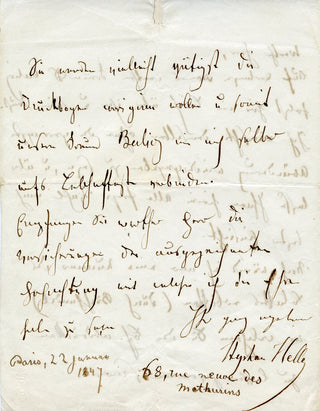 Sie werden vielleicht gütigst die
Druckbogen corrigiren wollen u somit
unsern Freund Berlioz u mich selber
aufs Lebhafteste verbinden.
Empfangen Sie werther Herr die
Versicherungen der ausgezeichneten
Hochachtung mit welcher ich die Ehre
habe zu seyn
Ihr ganz ergebener
Stephen Heller
Paris, 22 Januar
1847
68, rue neuve des
Mathurins